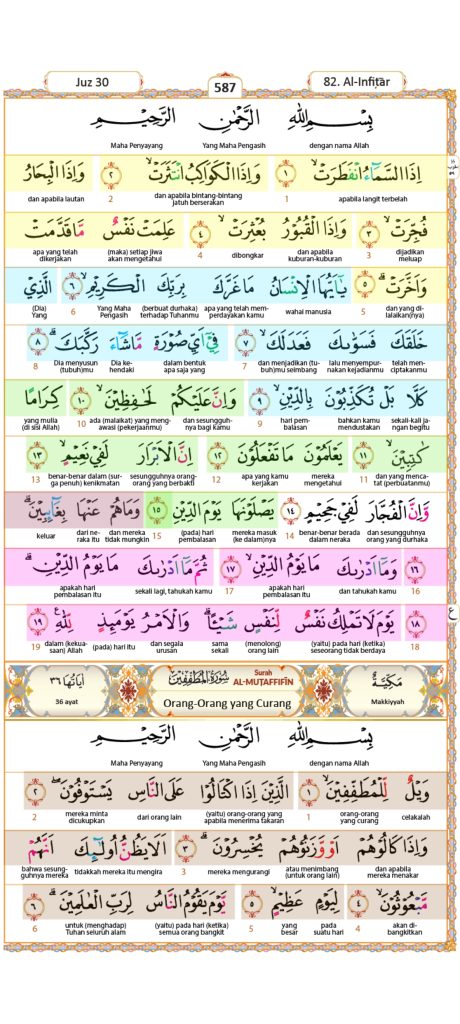 Juz 30
587
82. Al-Infiṭar
بِسْمِ اللّٰهِ الرَّحْمٰنِ الرَّحِيْمِ
dengan nama Allah Yang Maha Pengasih Maha Penyayang
اِذَا السَّمَاۤءُ انْفَطَرَتْۙ ١ وَاِذَا الْكَوَاكِبُ انْتَثَرَتْۙ ٢ وَاِذَا الْبِحَارُ
apabila langit terbelah 1 dan apabila bintang-bintang jatuh berserakan 2 dan apabila lautan
فُجِّرَتْۙ ٣ وَاِذَا الْقُبُوْرُ بُعْثِرَتْۙ ٤ عَلِمَتْ نَفْسٌ مَّا قَدَّمَتْ
dijadikan meluap 3 dan apabila kuburan-kuburan dibongkar 4 (maka) setiap jiwa akan mengetahui apa yang telah dikerjakan
وَاَخَّرَتْۗ ٥ يٰٓاَيُّهَا الْاِنْسَانُ مَا غَرَّكَ بِرَبِّكَ الْكَرِيْمِۙ ٦ الَّذِيْ
dan yang di-lalaikan(nya) 5 wahai manusia apa yang telah mem-perdayakan kamu (berbuat durhaka) terhadap Tuhanmu Yang Maha Pengasih 6 (Dia) Yang
خَلَقَكَ فَسَوّٰىكَ فَعَدَلَكَۙ ٧ فِيْٓ اَيِّ صُوْرَةٍ مَّا شَاۤءَ رَكَّبَكَۗ ٨
telah men-ciptakanmu lalu menyempur-nakan kejadianmu dan menjadikan (tu-buh)mu seimbang 7 dalam bentuk apa saja yang Dia ke-hendaki Dia menyusun (tubuh)mu 8
كَلَّا بَلْ تُكَذِّبُوْنَ بِالدِّيْنِۙ ٩ وَاِنَّ عَلَيْكُمْ لَحٰفِظِيْنَۙ ١٠ كِرَامًا
sekali-kali ja-ngan begitu bahkan kamu mendustakan hari pem-balasan 9 dan sesungguh-nya bagi kamu ada (malaikat) yang meng-awasi (pekerjaanmu) 10 yang mulia (di sisi Allah)
كٰتِبِيْنَۙ ١١ يَعْلَمُوْنَ مَا تَفْعَلُوْنَ ١٢ اِنَّ الْاَبْرَارَ لَفِيْ نَعِيْمٍۙ ١٣
dan yang menca-tat (perbuatanmu) 11 mereka mengetahui apa yang kamu kerjakan 12 sesungguhnya orang-orang yang berbakti benar-benar dalam (sur-ga penuh) kenikmatan 13
وَّاِنَّ الْفُجَّارَ لَفِيْ جَحِيْمٍ ١٤ يَصْلَوْنَهَا يَوْمَ الدِّيْنِ ١٥ وَمَا هُمْ عَنْهَا بِغَاۤىِٕبِيْنَۗ
dan sesungguhnya orang yang durhaka benar-benar berada dalam neraka 14 mereka masuk (ke dalam)nya (pada) hari pembalasan 15 dan mereka tidak mungkin dari ne-raka itu keluar
١٦ وَمَآ اَدْرٰىكَ مَا يَوْمُ الدِّيْنِۙ ١٧ ثُمَّ مَآ اَدْرٰىكَ مَا يَوْمُ الدِّيْنِۗ
16 dan tahukah kamu apakah hari pembalasan itu 17 sekali lagi, tahukah kamu apakah hari pembalasan itu
١٨ يَوْمَ لَا تَمْلِكُ نَفْسٌ لِّنَفْسٍ شَيْـًٔاۗ وَالْاَمْرُ يَوْمَىِٕذٍ لِّلّٰهِ ࣖ ١٩
18 (yaitu) pada hari (ketika) seseorang tidak berdaya (menolong) orang lain sama sekali dan segala urusan (pada) hari itu dalam (kekua-saan) Allah 19
ع
مَكِّيَّةٌ
Makkiyyah
سُوْرَةُ الْمُطَفِّفِيْنَ
Surah
AL-MUṬAFFIFĪN
Orang-Orang yang Curang
اٰيَاتُهَا ٣٦
36 ayat
بِسْمِ اللّٰهِ الرَّحْمٰنِ الرَّحِيْمِ
dengan nama Allah Yang Maha Pengasih Maha Penyayang
وَيْلٌ لِّلْمُطَفِّفِيْنَۙ ١ الَّذِيْنَ اِذَا اكْتَالُوْا عَلَى النَّاسِ يَسْتَوْفُوْنَۖ ٢
celakalah orang-orang yang curang 1 (yaitu) orang-orang yang apabila menerima takaran dari orang lain mereka minta dicukupkan 2
وَاِذَا كَالُوْهُمْ اَوْ وَّزَنُوْهُمْ يُخْسِرُوْنَۗ ٣ اَلَا يَظُنُّ اُولٰۤىِٕكَ اَنَّهُمْ
dan apabila mereka menakar atau menimbang (untuk orang lain) mereka mengurangi 3 tidakkah mereka itu mengira bahwa sesung-guhnya mereka
مَّبْعُوْثُوْنَۙ ٤ لِيَوْمٍ عَظِيْمٍۙ ٥ يَّوْمَ يَقُوْمُ النَّاسُ لِرَبِّ الْعٰلَمِيْنَۗ ٦
akan di-bangkitkan 4 pada suatu hari yang besar 5 (yaitu) pada hari (ketika) semua orang bangkit untuk (menghadap) Tuhan seluruh alam 6